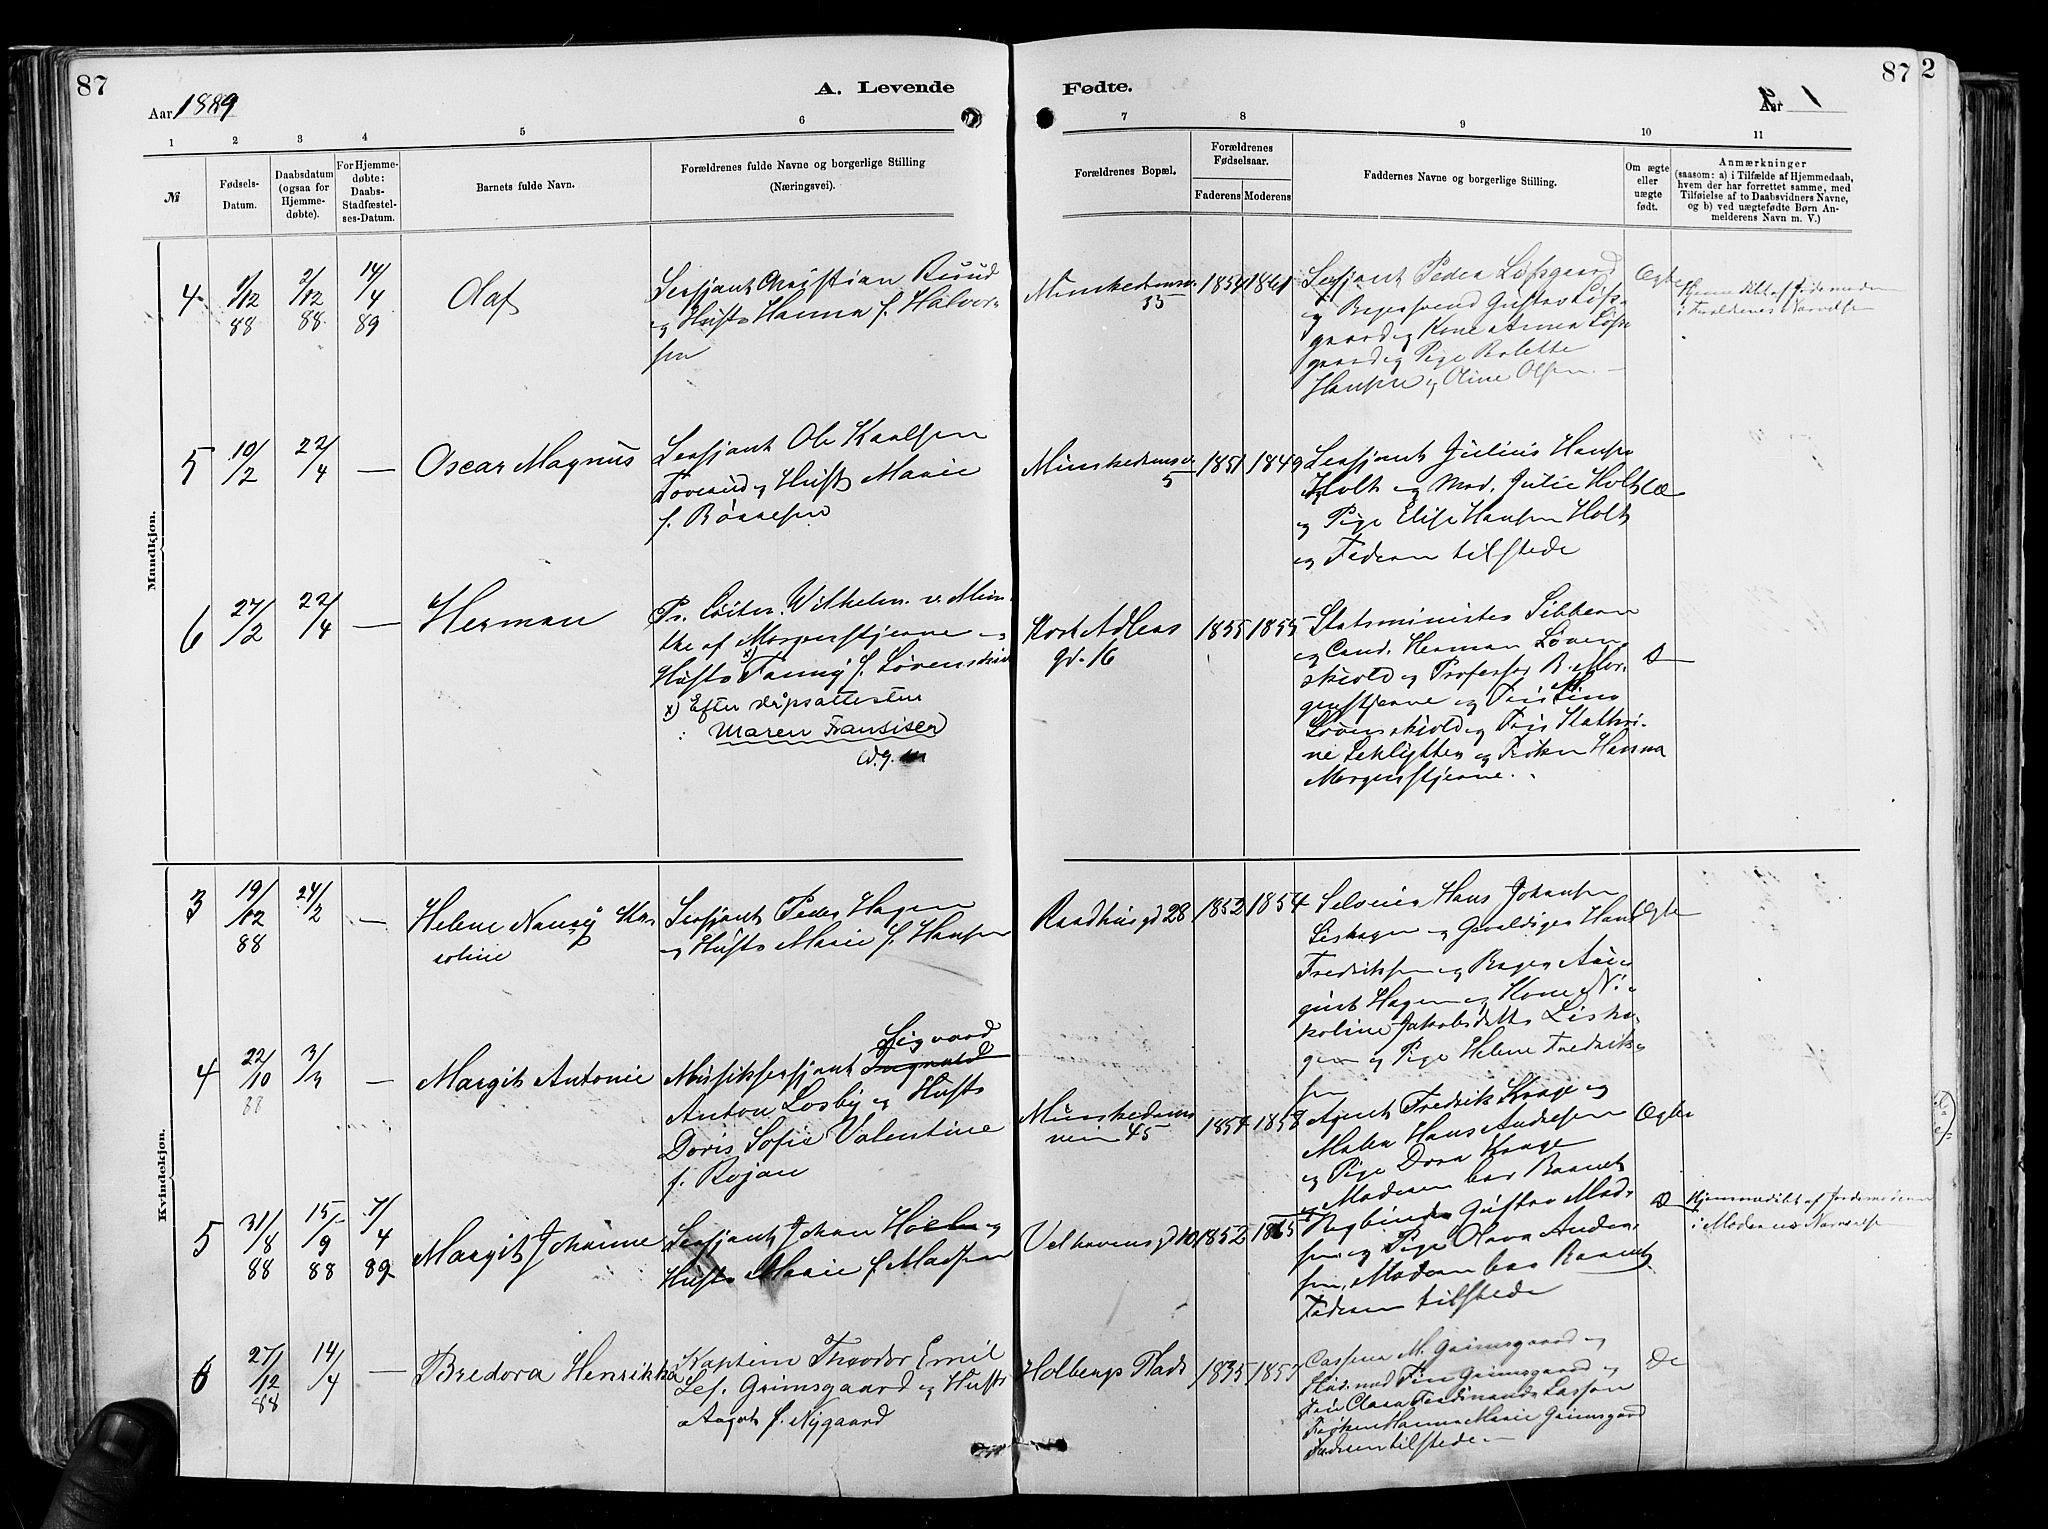 87
87
2
Aar 1889
A. Levende
Fødte.
Aar
1 2 3 4 5 6 7 8 9 10 11
№
Fødsels-
Datum.
Daabsdatum
(ogsaa for
Hjemme-
døbte).
For Hjemme-
døbte:
Daabs-
Stadfæstel-
ses-Datum.
Barnets fulde Navn.
Forældrenes fulde Navne og borgerlige Stilling
(Næringsvei).
Forældrenes Bopæl.
Forældrenes
Fødselsaar.
Faderens Moderens
Faddernes Navne og borgerlige Stilling.
Om ægte
eller
uægte
født.
Anmærkninger
(saasom: a) i Tilfælde af Hjemmedaab,
hvem der har forrettet samme, med
Tilføielse af to Daabsvidners Navne,
og b) ved uægtefødte Børn An-
melderens Navn m. V.)
Mandkjøn.
4
9/12 88
2/12 88
14/4 89
Olaf
Sersjant Christian Ruud
og Hustr Hanna f. Halvor-
sen
Munkedamsv.
35
1854 1861
Sersjant Peder Løfsgaard
og Bagersvend Gustav Løfs-
gaard og Kone Anna Løfs
gaard og Pige Bolette
Hansen og Oline Olsen
Ægte
Hjemmedøbt af Jordemoderen
5
10/2
22/4
—
Oscar Magnus
Sersjant Ole Karlsen
Foverud og Hustr Marie
f. Børresen
Munkedamsv.
5
1851 1849
Sersjant Julius Hansen
Holt og Mad. Julie Holt
og Pige Elise Hansen Holt
og Federen tilstede
Æ
6
27/2
22/4
—
Herman
Pr. Løitn. Wilhelm v. Mun-
the af Morgenstjerne og
Hustr x) Fanny f. Løvenskiold
x) Efter dåpsattesten
: Maren Fransisca
Kort Adlers
gd. 16
1855 1855
Statsminister Sibbern
og Cand. Herman Løven
skiold og Professor B. Mor-
genstjerne og Fru Eline
Løvenskiold og Frøk Kathri-
ne Leklytten og Frøken Hanna
Morgenstjerne.
D
Kvindekjøn.
3
19/12 88
24/2
—
Helene Nancy Ka-
roline
Sersjant Peder Hagen
og Hustr Marie f. Hansen
Raadhusgd 28
1852 1854
Selveier Hans Johansen
Liskagen og Gevaldiger Hans
Fredriksen og Bager Au-
gust Hagen og Kone Ni-
koline Jakobsdatter Liska-
gen og Pige Helene Fredrik-
sen
Ægte
4
22/10 88
3/3
—
Margit Antonie
Sigvard
Musiksersjant Ingvald
Anton Losby og Hustr
Doris Sofie Valentine
f. Rojan
Munkedams
veien 45
1854 1858
Agent Fredrik Krage og
Maler Hans Andresen
og Pige Dora Krage
og Moderen bar Barnet
Ægte
5
31/8 88
15/9 88
7/4 89
Margit Johanne
Sersjant Johan Holm og
Hustr Marie f Madsen
Velhavens gd 10
1852 1865
Bogbinder Gustav Mad-
sen og Pige Olava Ander-
sen, Moderen bar Barnet
Faderen tilstede
D
Hjemmedøbt af Jordemoderen
i Moderens Nærværelse
6
27/12 88
14/4
—
Bredora Henrikka
Kaptein Theodor Emil
Lef. Grimsgaard og Hustr
Aagot f. Nygaard
Holbergs Plads
1835 1857
Casserer M. Grimsgaard og
Stud. med Finn Grimsgaard og
Fru Clara Ferdinanda Lasson
Frøken Hanna Marie Grimsgaard
Faderen tilstede
Do